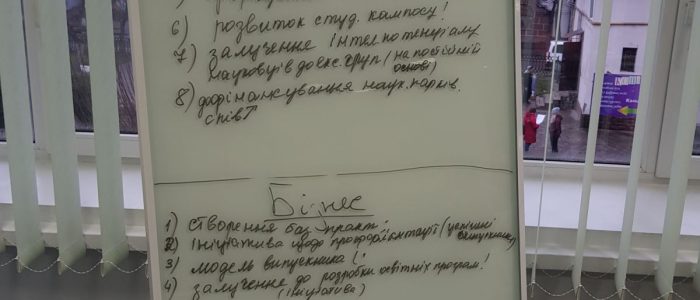 6) розвиток студ. кампосу!
7) залучення інтел потенціалу
науковців до екс. груп (на постійній
основі)
8) дофінансування наук. парків.
спів↑
Бізнес
1) створення баз практ.
2) Ініціатива щодо профорієнтації (успішні
випускники)
3) модель випускника (!
4) залучення до розробки освітніх програм!
(ініціатива)